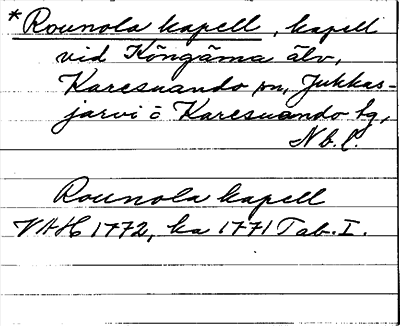 * Rounola kapell, kapell
vid Köngäma älv,
Karesuando sn, Jukkas-
jarvi o Karesuando tg,
Nb. l.
Rounola kapell
VAH 1772, ka 1771 Tab. I.